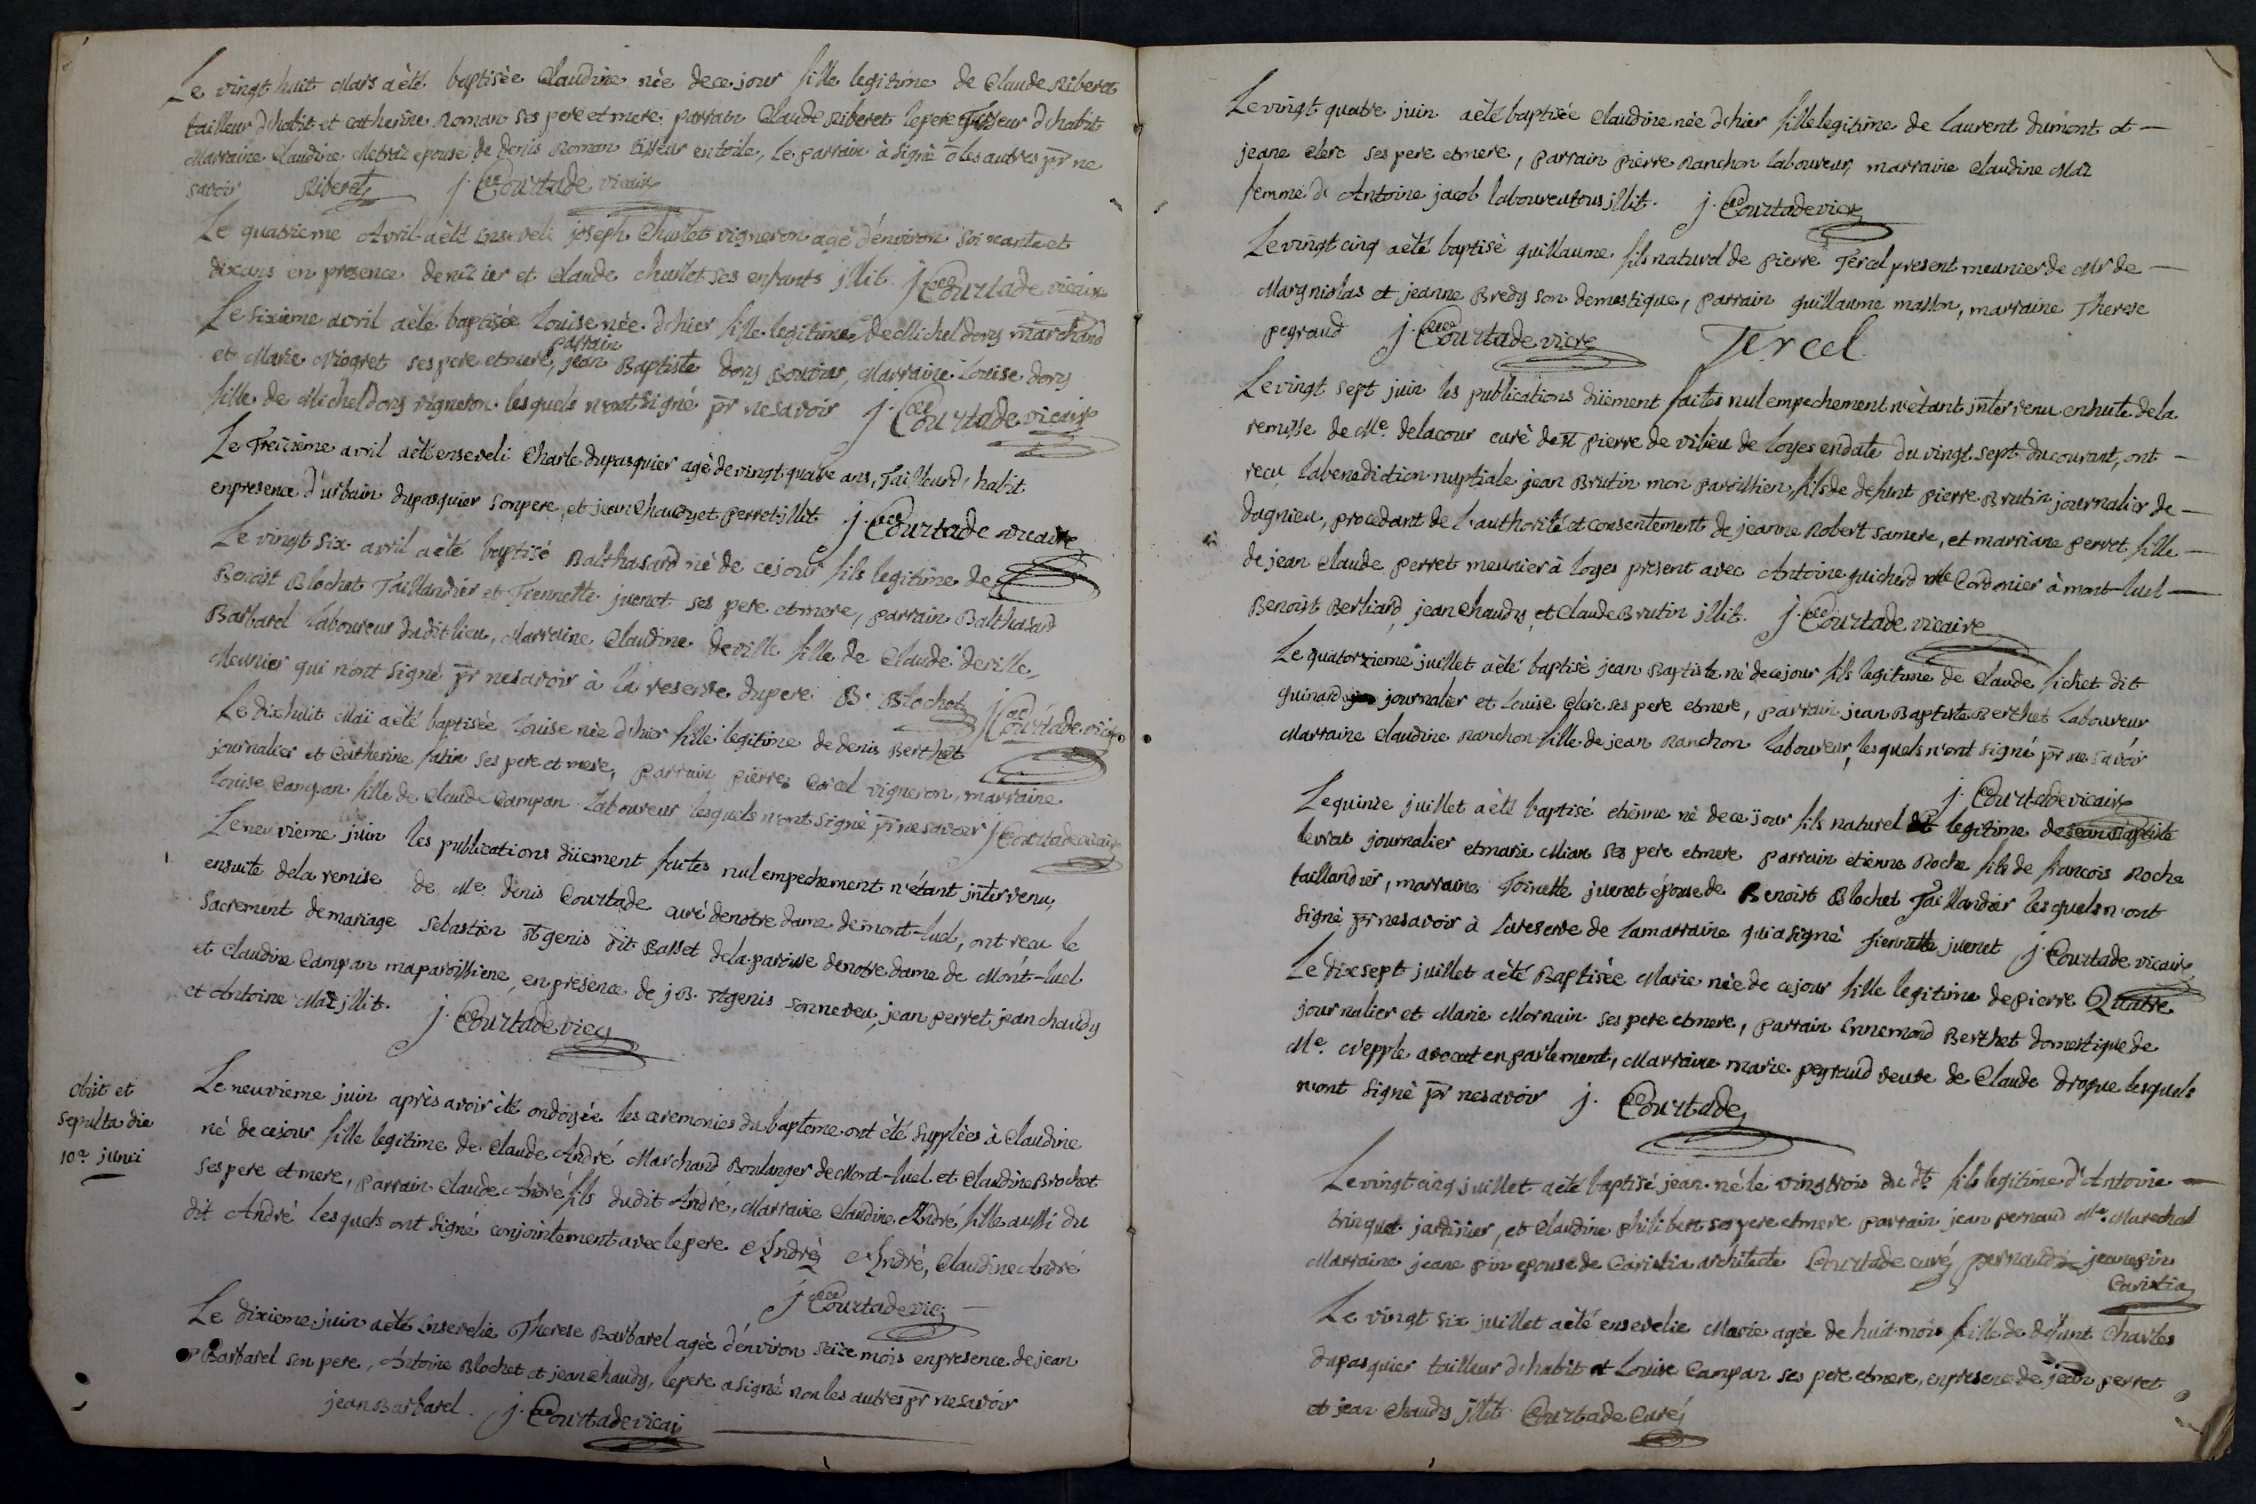 Le vingt huit Mars a èté baptisèe Claudine nèe de ce jour fille legitime de Claude Riberet
tailleur d'habit et catherine Roman ses pere et mere. parrain Claude Riberet le pere Tailleur d'habit
Marraine Claudine Metraz epouse de denis Roman tisseur en toile, le parrain à signé les autres pr ne
savoir Riberet j. Courtade vicaire
Le quatrieme Avril a èté enseveli joseph Churlet vigneron agé d'environ soixante et
dix ans en presence de nizier et Claude churlet ses enfants illit. j. Courtade vicaire
Le sixieme avril a èté baptisèe Louise nèe d'hier fille legitime de Michel dory marchand
et Marie Miogret ses pere et mere, parrain jean Baptiste dory Bouvier, Marraine Louise dory
fille de Michel dory vigneron lesquels n'ont signé pr ne savoir j. Courtade vicaire
Le Treizième avril a èté enseveli Charle dupasquier agè de vingt quatre ans, Tailleur d'habit
en presence d'urbain dupasquier son pere, et jean Chaudy et perret illit j. Courtade vicaire
Le vingt six avril a èté baptisé Balthasard né de ce jour fils legitime de
Benoist Blochet Taillandier et Fiennette juenet ses pere et mere, parrain Balthasard
Barbarel Laboureur dudit lieu, Marraine Claudine deville fille de Claude deville,
Meunier qui n'ont signé pr ne savoir à la reserve du pere. B. Blochet j. Courtade vicaire
Le dix huit Maï a èté baptisèe Louise nèe d'hier fille legitime de denis Berthet
journalier et Catherine fatin ses pere et mere, parrain pierre Carel vigneron, marraine
Louise Campan fille de Claude Campan Laboureur lesquels n'ont signé pr ne savoir j. Courtade vicaire
Le neuvieme juin les publications düement faites nul empechement n'étant intervenu,
ensuite de la remise de Me. denis Courtade curé de notre dame de mont-luel, ont reçu le
Sacrement de mariage Sebastien st genis dit Basset de la paroisse de notre dame de Mont-luel
et Claudine Campan ma paroissiene, en presence de j B. st genis son neveu, jean perret jean chaudy
et Antoine Maz illit. j. Courtade vic
Obiit et
sepulta die
10a junii
Le neuvieme juin après avoir été ondoyée les ceremonies du bapteme ont été supplèes à Claudine
né de ce jour fille legitime de Claude André Marchand Boulanger de Mont-luel et Claudine Brochet
ses pere et mere, parrain Claude André fils dudit André, Marraine Claudine André fille aussi du
dit André lesquels ont signé conjointement avec le pere. André André, Claudine André
j. Courtade vic
Le dixieme juin a èté ensevelie Therese Barbarel agèe d'environ seize mois en presence de jean
Barbarel son pere, Antoine Blochet et jean chaudy, le pere a signé non les autres pr ne savoir
jean Barbarel. j. Courtade vicai
Le vingt quatre juin a èté baptisée Claudine née d'hier fille legitime de Laurent dumont et
jeane clerc ses pere et mere, parrain pierre Ranchon laboureur, marraine Claudine Maz
femme d'Antoine jacob laboureur tous illit. j. Courtade vicr
Le vingt cinq a èté baptisè guillaume fils naturel de pierre Tercel present meunier de Mr de
Margniolas et jeanne Bredy son domestique, parrain guillaume masson, marraine Therese
pegraud j. Courtade vicre Tercel
Le vingt sept juin les publications düement faites nul empechement n'ètant intervenu ensuite de la
remisse de Me. delacour curé de st pierre de vilieu de Loyes en date du vingt sept du courant, ont
reçu la benediction nuptiale jean Brutin mon paroissien, fils de defunt pierre Brutin journalier de
dagnieu, procedant de l'authorité et consentement de jeanne Robert sa mere, et marriane perret fille
de jean Claude perret meunier à Loyes present avec Antoine guichard Cordonier à mont-luel
Benoist Berliard, jean chaudy, et Claude Brutin illit. j. Courtade vicaire
Le quatorzieme juillet a èté baptisé jean Baptiste né de ce jour fils legitime de Claude fichet dit
guinard journalier et Louise Clerc ses pere et mere, parrain jean Baptiste Berthet Laboureur
Marraine Claudine Ranchon fille de jean Ranchon Laboureur, lesquels n'ont signé pr ne savoir
j. Courtade vicaire
Le quinze juillet a èté baptisé etienne né de ce jour fils naturel et legitime de jean Baptiste
levrat journalier et marie Mian ses pere et mere parrain etienne Roche fils de francois Roche
taillandier, marraine Toinette juenet épouse de Benoist Blochet Taillandier lesquels n'ont
signé pr ne savoir à la reserve de la marraine qui a signé fiennette juenet j. Courtade vicaire
Le dix sept juillet a èté Baptisèe Marie nèe de ce jour fille legitime de pierre Quatre
journalier et Marie Mornain ses pere et mere, parrain Ennemond Berthet domestique de
Me. Nepple avocat en parlement, Marraine marie pegraud veuve de Claude drogue lesquels
n'ont signé pr ne savoir j. Courtade
Le vingt cinq juillet a èté baptisé jean né le vingt trois du dt fils legitime d'Antoine
trinquet jardinier, et Claudine philibert ses pere et mere parrain jean pernaud Me. Marechal
Marraine jeane pin epouse de Caristia architecte Courtade curé pernaud jeane pin
Caristia
Le vingt six juillet a èté ensevelie Marie agée de huit mois fille de defunt Charles
dupasquier tailleur d'habit et Louise Campan ses pere et mere, en presence de jean perret
et jean Chaudy illit Courtade Curé